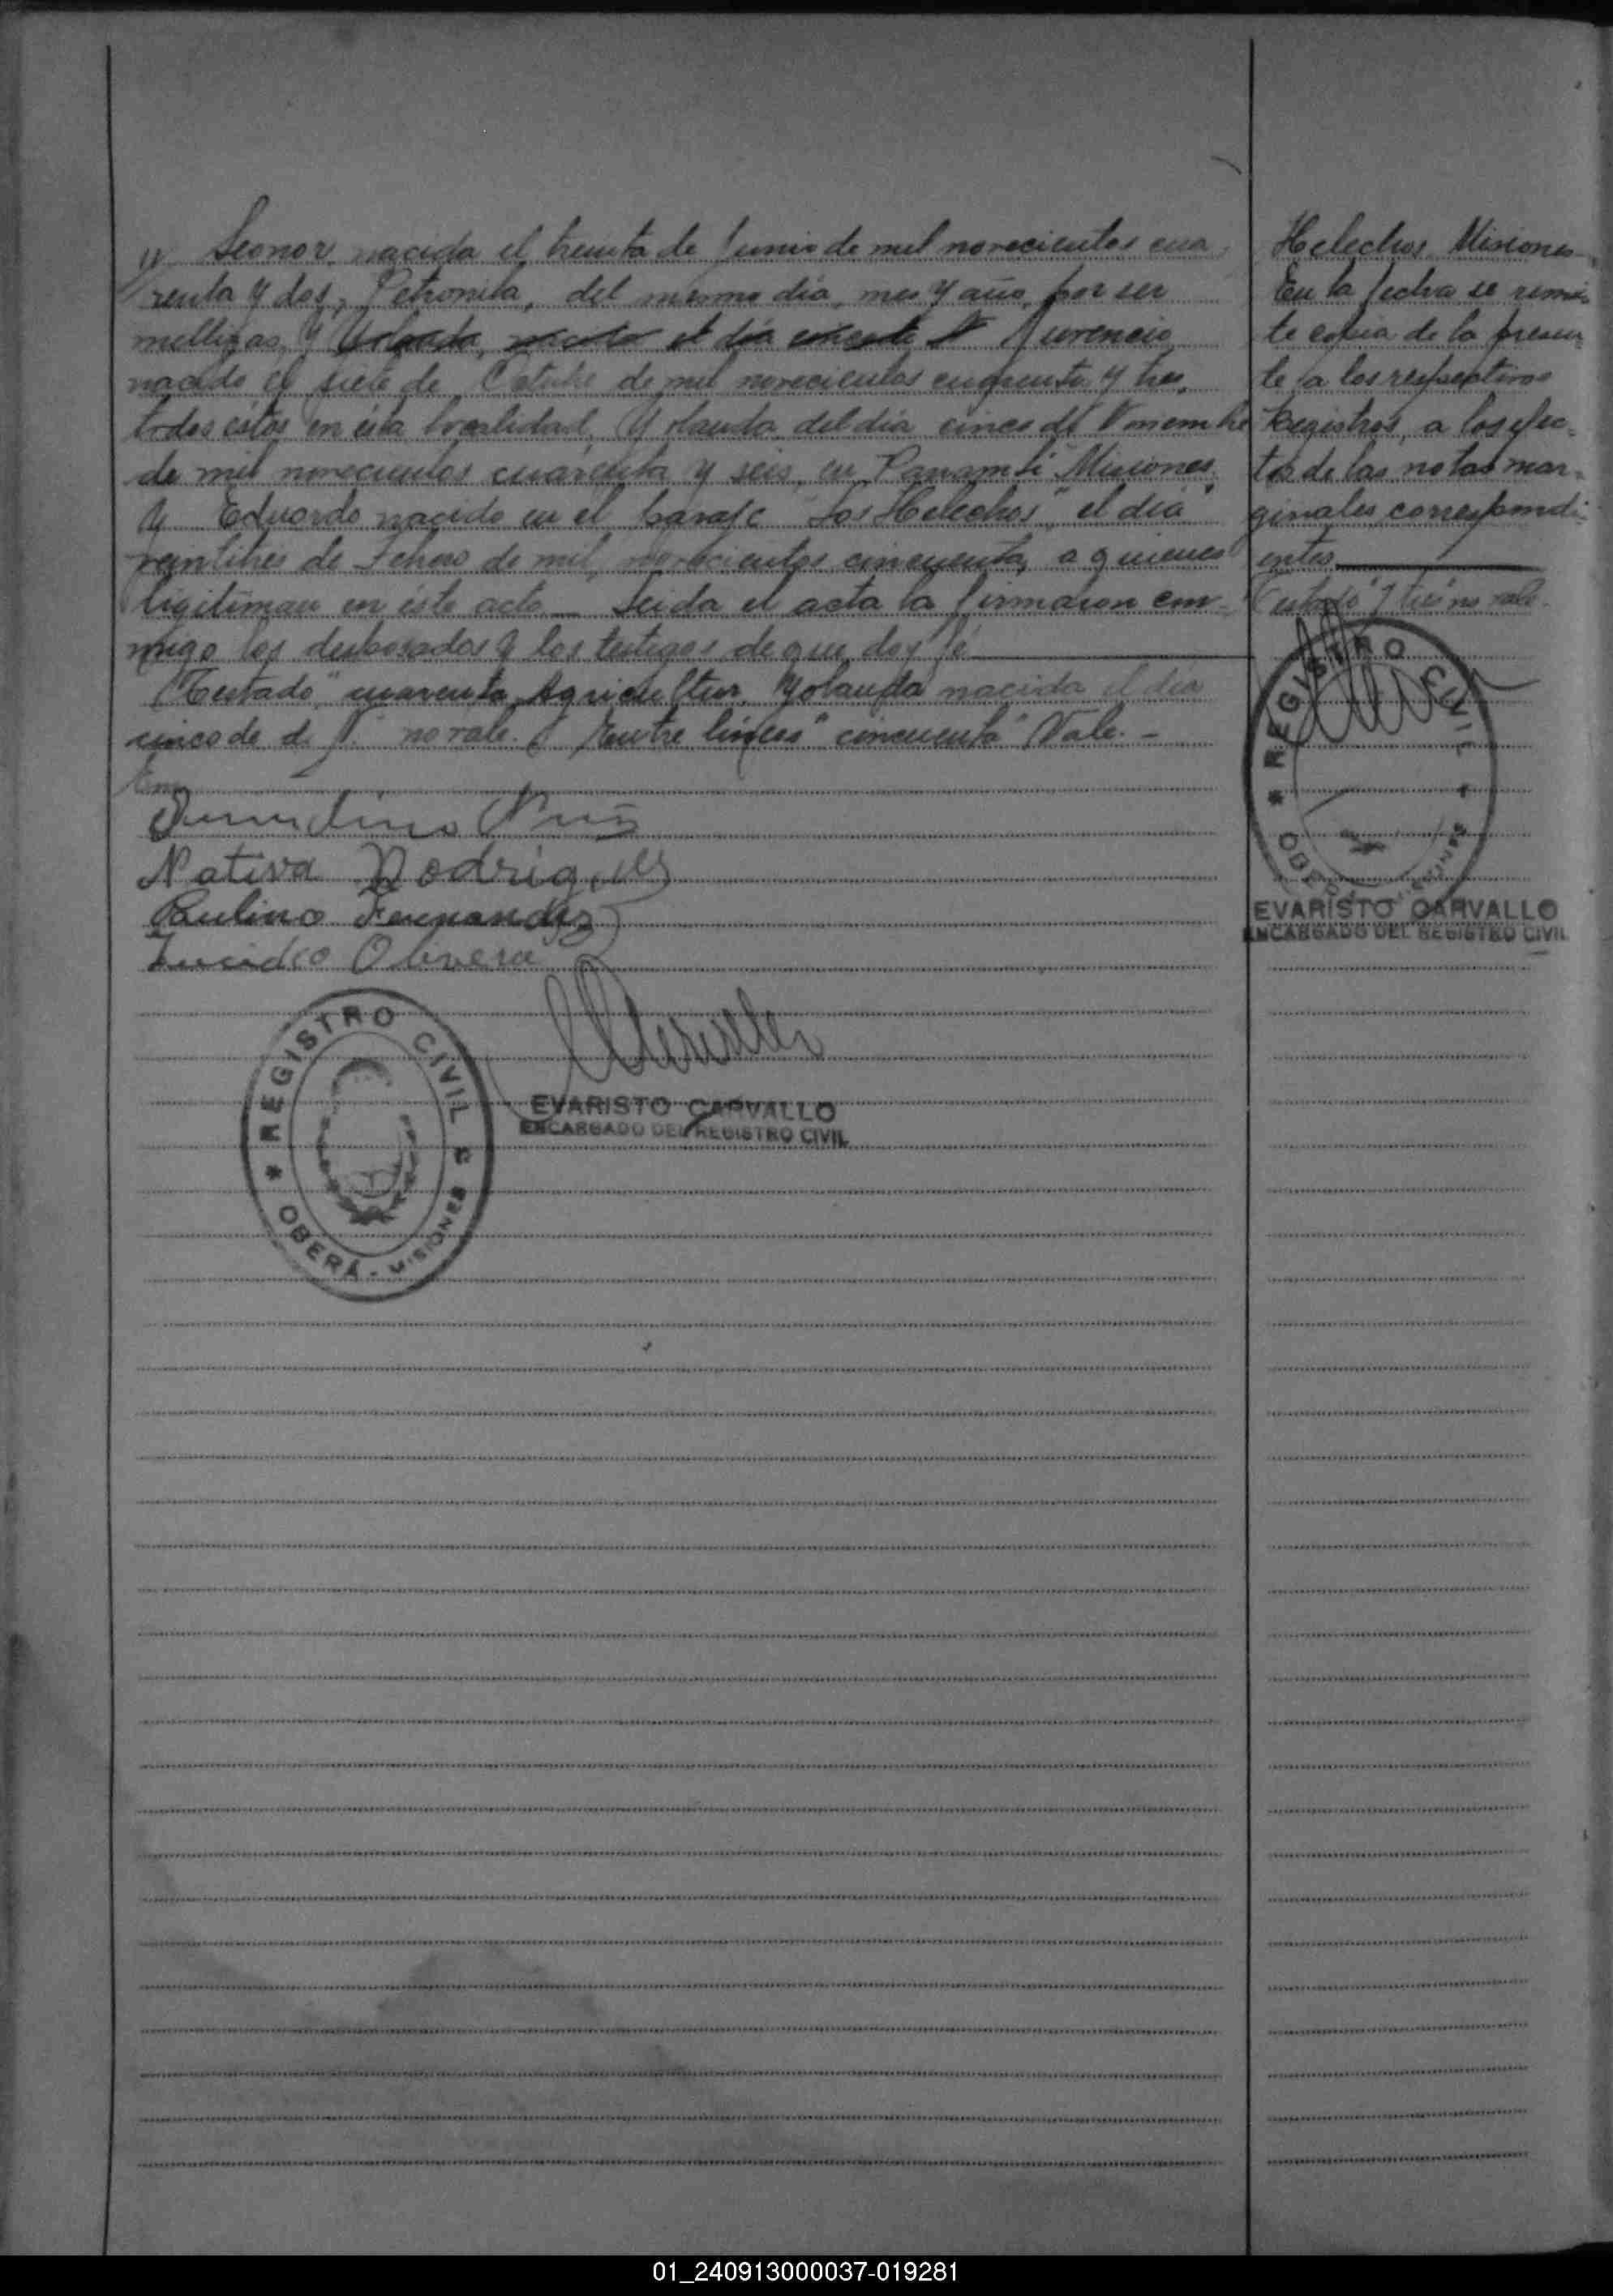 y Leonor, nacida el treinta de Junio de mil novecientos cua
renta y dos, Petronila, del mismo día, mes y año, por ser
mellizas, y
nacido el siete de Octubre de mil novecientos cuarenta y tres,
todos éstos en ésta localidad, Yolanda del día cinco de
de mil novecientos cuarenta y seis, en Panambí Misiones
y Eduardo nacido en el paraje "Los Helechos", el día
veintitres de Febrero de mil novecientos cincuenta, a quienes
legitiman en éste acto. Leida el acta la firmaron con-
migo los desposados y los testigos de que doy fé
"Testado" cuarenta, Agricultur, Yolanda nacida el día
cinco de d. N. no vale. Entre líneas "cincuenta" Vale. -
Nativa Rodriguez
Paulino Fernandez
Olivera
REGISTRO CIVIL
OBERÁ - MISIONES
EVARISTO CARVALLO
ENCARGADO DEL REGISTRO CIVIL
Helechos Misiones
En la fecha se remi-
te copia de la presen
te a los respectivos
Registros, a los efec-
tos de las notas mar-
ginales correspondi-
entes
"Testado" no vale.
REGISTRO CIVIL
OBERÁ - MISIONES
EVARISTO CARVALLO
ENCARGADO DEL REGISTRO CIVIL
01_240913000037-019281